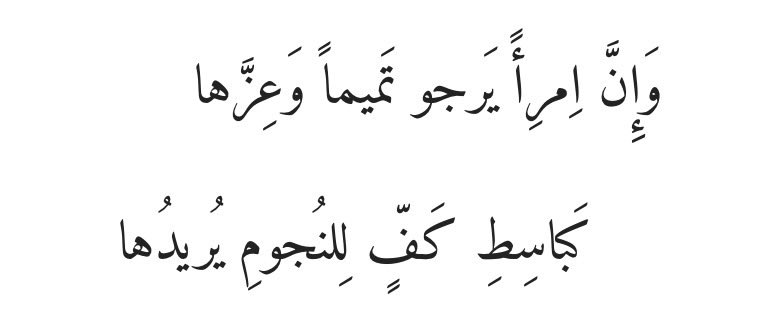 وَإِنَّ اِمرِأًً يَرجو تَميماً وَعِزَّها
كَباسِطِ كَفٍّ لِلنُجومِ يُريدُها